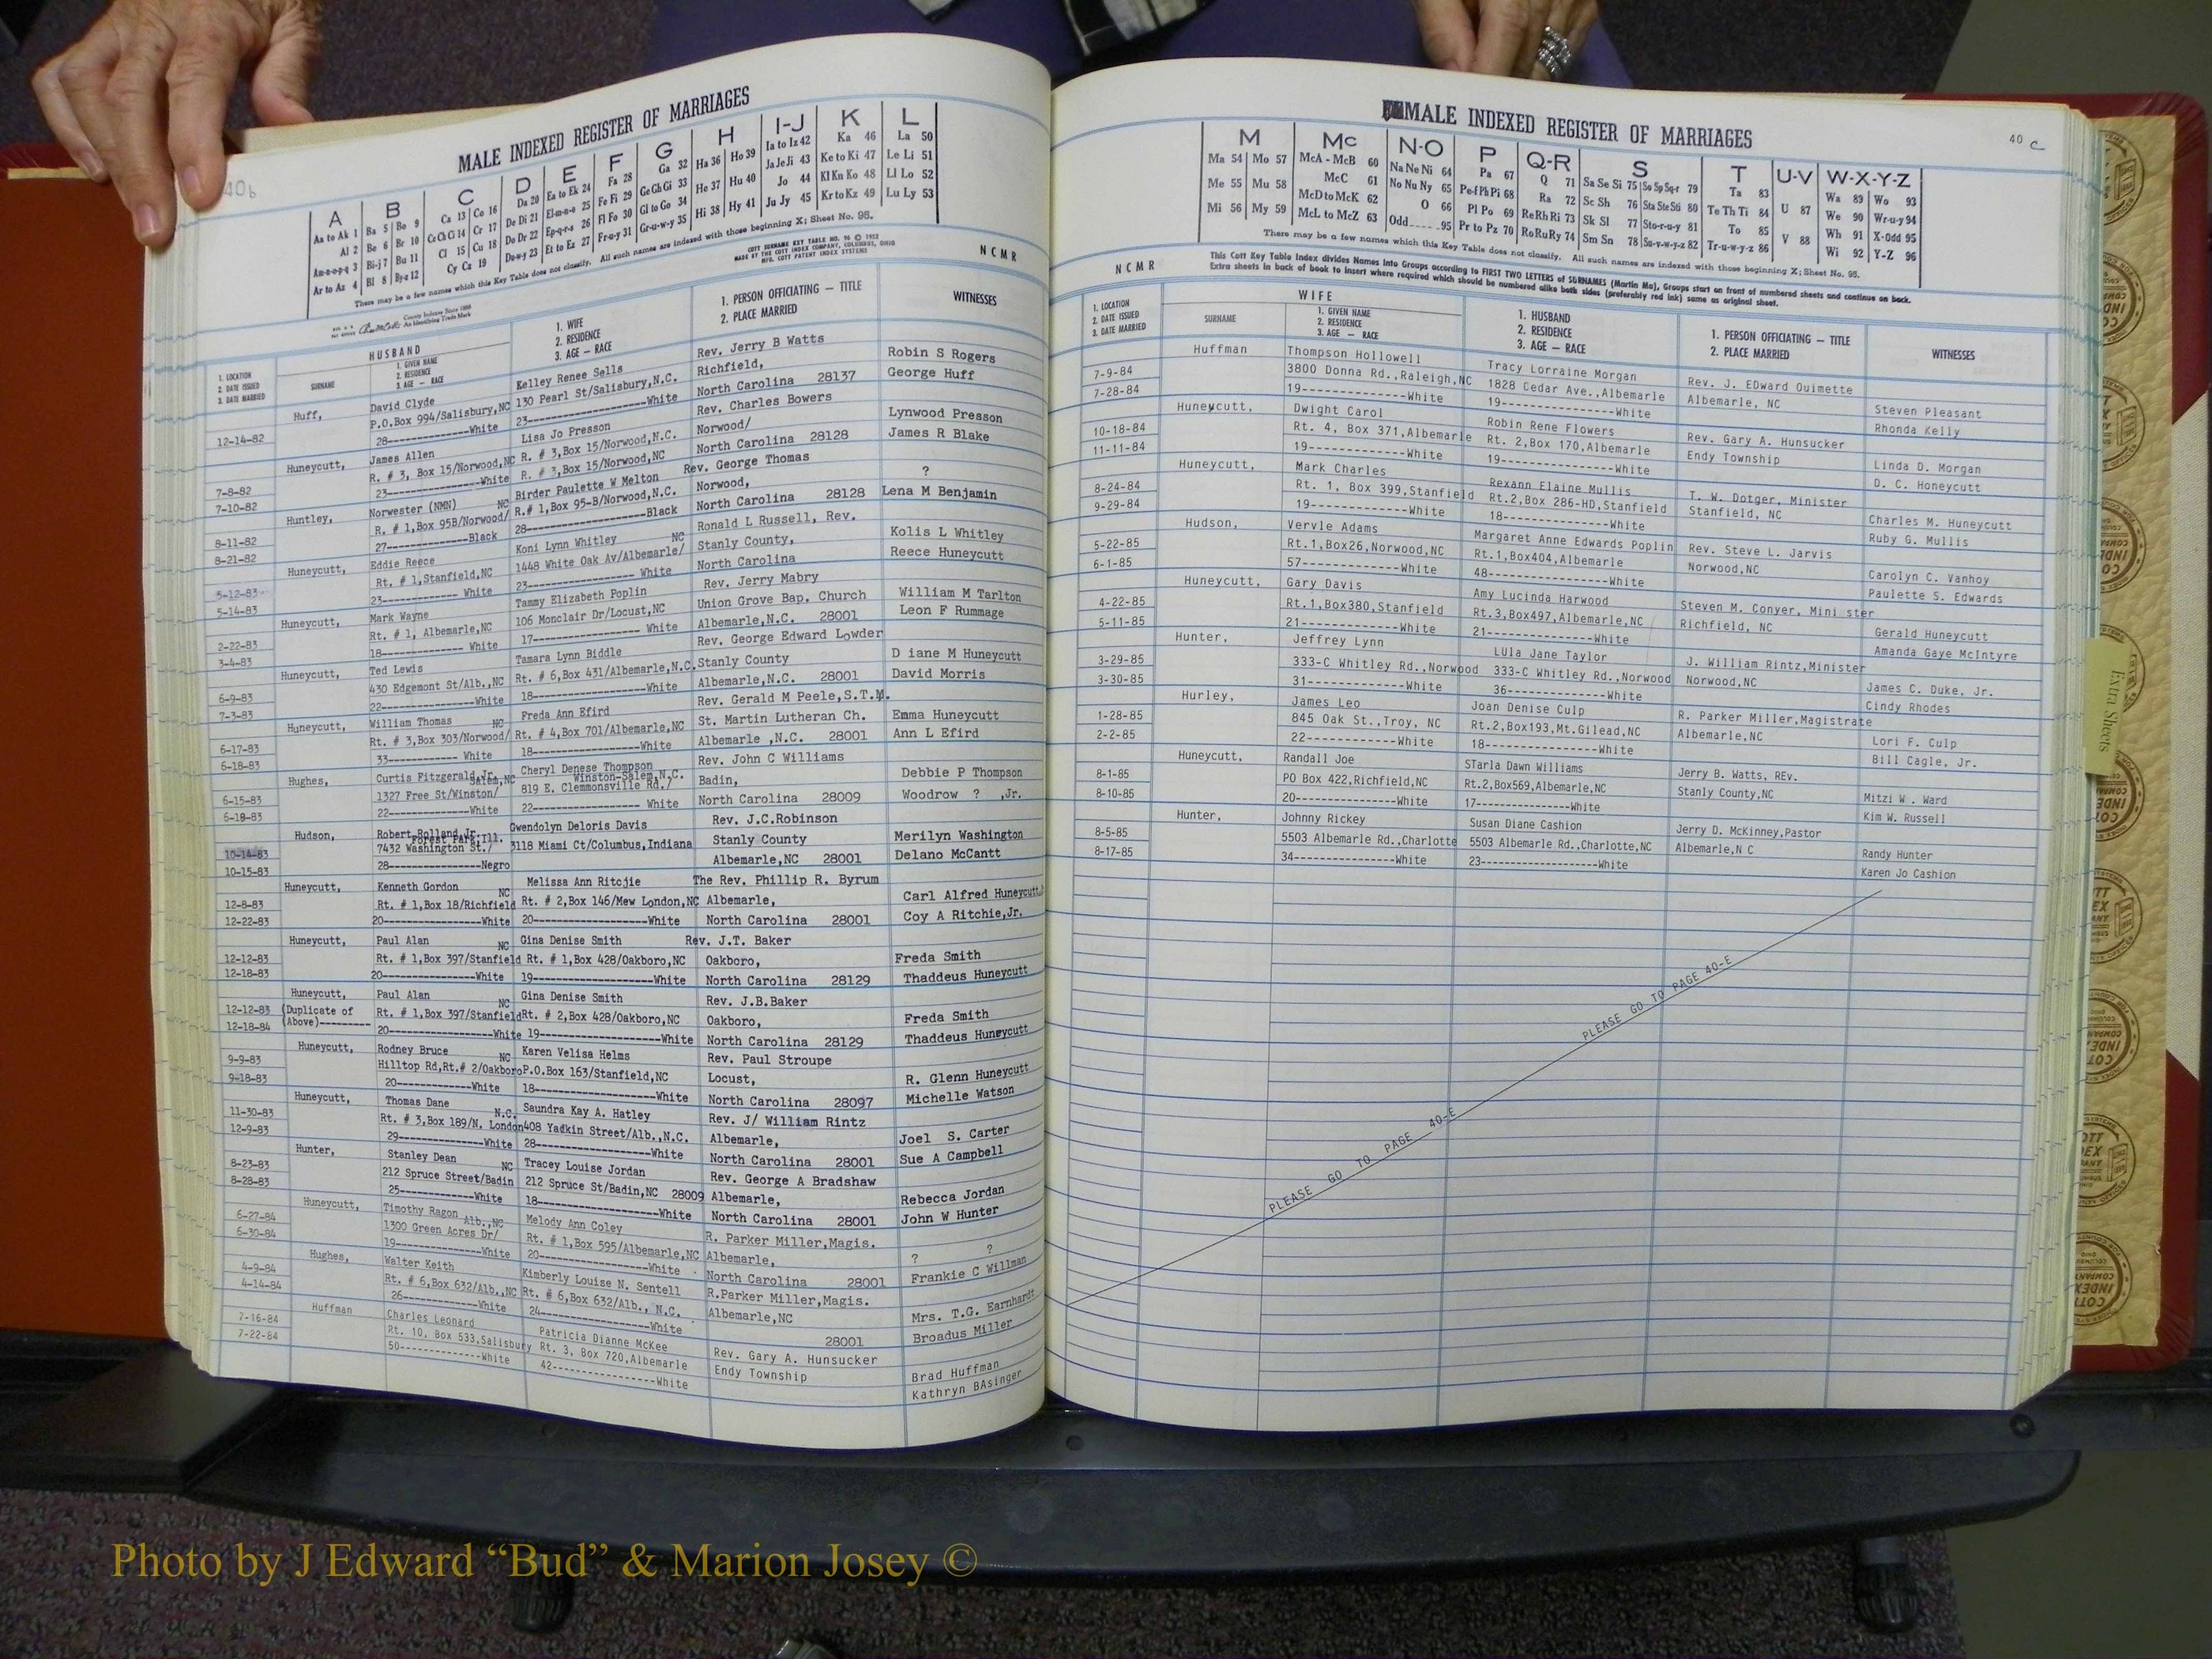 40b
MALE INDEXED REGISTER OF MARRIAGES
A B C D E F G H I-J K L
Aa to Ak 1 Ba 5 Be 9 Ca 13 Co 16 Da 20 Ea to Ek 24 Fa 28 Ga 32 Ha 36 Ho 39 Ia to Iz 42 Ka 46 La 50
Al 2 Be 6 Br 10 Ce Ch Ci 14 Cr 17 De Di 21 El-m-n-o 25 Fe Fi 29 Ge Gh Gi 33 He 37 Hu 40 Ja Je Ji 43 Ke to Ki 47 Le Li 51
Am-n-o-p-q 3 Bi-j 7 Bu 11 Cl 15 Cu 18 Do Dr 22 Ep-q-r-s 26 Fl Fo 30 Gl to Go 34 Hi 38 Hy 41 Jo 44 Kl Kn Ko 48 Ll Lo 52
Ar to Az 4 Bl 8 By-z 12 Cy Cz 19 Du-w-y 23 Et to Ez 27 Fr-u-y 31 Gr-u-w-y 35 Ju Jy 45 Kr to Kz 49 Lu Ly 53
There may be a few names which this Key Table does not classify. All such names are indexed with those beginning X; Sheet No. 95.
COTT SURNAME KEY TABLE NO. 96 © 1952
MADE BY THE COTT INDEX COMPANY, COLUMBUS, OHIO
MFG. COTT PATENT INDEX SYSTEMS
County Indexes Since 1888
An Identifying Trade Mark
N C M R
1. LOCATION
2. DATE ISSUED
3. DATE MARRIED
HUSBAND
SURNAME
1. GIVEN NAME
2. RESIDENCE
3. AGE — RACE
1. WIFE
2. RESIDENCE
3. AGE — RACE
1. PERSON OFFICIATING — TITLE
2. PLACE MARRIED
WITNESSES
Huff, David Clyde Kelley Renee Sells Rev. Jerry B Watts Robin S Rogers
P.O.Box 994/Salisbury,NC 130 Pearl St/Salisbury,N.C. Richfield, George Huff
12-14-82 28-------------White 23--------------------White North Carolina 28137
Huneycutt, James Allen Lisa Jo Presson Rev. Charles Bowers Lynwood Presson
7-8-82 R. # 3, Box 15/Norwood,NC R. # 3,Box 15/Norwood,N.C. Norwood/ James R Blake
7-10-82 23----------------White R. # 3,Box 15/Norwood,NC North Carolina 28128
Huntley, Norwester (NMN) NC Birder Paulette W Melton Rev. George Thomas ?
8-11-82 R. # 1,Box 95B/Norwood/ R.# 1,Box 95-B/Norwood,N.C. Norwood, Lena M Benjamin
8-21-82 27-------------Black 28------------------Black North Carolina 28128
Huneycutt, Eddie Reece Koni Lynn Whitley NC Ronald L Russell, Rev. Kolis L Whitley
5-12-83 Rt. # 1,Stanfield,NC 1448 White Oak Av/Albemarle/ Stanly County, Reece Huneycutt
5-14-83 23------------ White 23----------------- White North Carolina
Huneycutt, Mark Wayne Tammy Elizabeth Poplin Rev. Jerry Mabry William M Tarlton
2-22-83 Rt. # 1, Albemarle,NC 106 Monclair Dr/Locust,NC Union Grove Bap. Church Leon F Rummage
3-4-83 18-------------- White 17----------------- White Albemarle,N.C. 28001
Huneycutt, Ted Lewis Tamara Lynn Biddle Rev. George Edward Lowder D iane M Huneycutt
6-9-83 430 Edgemont St/Alb.,NC Rt. # 6,Box 431/Albemarle,N.C. Stanly County David Morris
7-3-83 22----------------White 18------------------White Albemarle,N.C. 28001
Huneycutt, William Thomas NC Freda Ann Efird Rev. Gerald M Peele,S.T.M. Emma Huneycutt
6-17-83 Rt. # 3,Box 303/Norwood/ Rt. # 4,Box 701/Albemarle,NC St. Martin Lutheran Ch. Ann L Efird
6-18-83 33----------- White 18-----------------White Albemarle ,N.C. 28001
Hughes, Curtis Fitzgerald,Jr. Salem,NC Cheryl Denese Thompson Winston-Salem,N.C. Rev. John C Williams Debbie P Thompson
6-15-83 1327 Free St/Winston/ 819 E. Clemmonsville Rd./ Badin, Woodrow ? ,Jr.
6-18-83 22--------------White 22----------------- White North Carolina 28009
Hudson, Robert Rolland,Jr. Forest Park,Ill. Gwendolyn Deloris Davis Rev. J.C.Robinson Merilyn Washington
10-14-83 7432 Washington St./ 3118 Miami Ct/Columbus,Indiana Stanly County Delano McCantt
10-15-83 28----------------Negro Albemarle,NC 28001
Huneycutt, Kenneth Gordon NC Melissa Ann Ritcjie The Rev. Phillip R. Byrum Carl Alfred Huneycutt
12-8-83 Rt. # 1,Box 18/Richfield Rt. # 2,Box 146/Mew London,NC Albemarle, Coy A Ritchie,Jr.
12-22-83 20-----------------White 20-----------------White North Carolina 28001
Huneycutt, Paul Alan NC Gina Denise Smith Rev. J.T. Baker Freda Smith
12-12-83 Rt. # 1,Box 397/Stanfield Rt. # 1,Box 428/Oakboro,NC Oakboro, Thaddeus Huneycutt
12-18-83 20----------------White 19------------------White North Carolina 28129
Huneycutt, Paul Alan NC Gina Denise Smith Rev. J.B.Baker Freda Smith
12-12-83 (Duplicate of Rt. # 1,Box 397/Stanfield Rt. # 2,Box 428/Oakboro,NC Oakboro, Thaddeus Huneycutt
12-18-84 (Above)--------- 20-------------------White 19-------------------White North Carolina 28129
Huneycutt, Rodney Bruce NC Karen Velisa Helms Rev. Paul Stroupe R. Glenn Huneycutt
9-9-83 Hilltop Rd,Rt.# 2/Oakboro P.O.Box 163/Stanfield,NC Locust, Michelle Watson
9-18-83 20-------------White 18-----------------White North Carolina 28097
Huneycutt, Thomas Dane N.C. Saundra Kay A. Hatley Rev. J/ William Rintz Joel S. Carter
11-30-83 Rt. # 3,Box 189/N. London 408 Yadkin Street/Alb.,N.C. Albemarle, Sue A Campbell
12-9-83 29--------------White 28------------------White North Carolina 28001
Hunter, Stanley Dean NC Tracey Louise Jordan Rev. George A Bradshaw Rebecca Jordan
8-23-83 212 Spruce Street/Badin 212 Spruce St/Badin,NC 28009 Albemarle, John W Hunter
8-28-83 25--------------White 18-------------------White North Carolina 28001
Huneycutt, Timothy Ragon Alb.,NC Melody Ann Coley R. Parker Miller,Magis. ?
6-27-84 1300 Green Acres Dr/ Rt. # 1,Box 595/Albemarle,NC Albemarle, ? Frankie C Willman
6-30-84 19---------------White 20-----------------White North Carolina 28001
Hughes, Walter Keith Kimberly Louise N. Sentell R.Parker Miller,Magis. Mrs. T.G. Earnhardt
4-9-84 Rt. # 6,Box 632/Alb.,NC Rt. # 6,Box 632/Alb., N.C. Albemarle,NC Broadus Miller
4-14-84 26-------------White 24------------------White 28001
Huffman Charles Leonard Patricia Dianne McKee Rev. Gary A. Hunsucker Brad Huffman
7-16-84 Rt. 10, Box 533,Salisbury Rt. 3, Box 720,Albemarle Endy Township Kathryn BAsinger
7-22-84 50---------------White 42-----------------White
MALE INDEXED REGISTER OF MARRIAGES
40 c
M Mc N-O P Q-R S T U-V W-X-Y-Z
Ma 54 Mo 57 McA - McB 60 Na Ne Ni 64 Pa 67 Q 71 Sa Se Si 75 So Sp Sq-r 79 Ta 83 U 87 Wa 89 Wo 93
Me 55 Mu 58 McC 61 No Nu Ny 65 Pe-f Ph Pi 68 Ra 72 Sc Sh 76 Sta Ste Sti 80 Te Th Ti 84 V 88 We 90 Wr-u-y 94
Mi 56 My 59 McD to McK 62 O 66 Pl Po 69 Re Rh Ri 73 Sk Sl 77 Sto-r-u-y 81 To 85 Wh 91 X-Odd 95
McL to McZ 63 Odd_____95 Pr to Pz 70 Ro Ru Ry 74 Sm Sn 78 Su-v-w-y-z 82 Tr-u-w-y-z 86 Wi 92 Y-Z 96
There may be a few names which this Key Table does not classify. All such names are indexed with those beginning X; Sheet No. 95.
This Cott Key Table Index divides Names into Groups according to FIRST TWO LETTERS of SURNAMES (Martin Ma), Groups start on front of numbered sheets and continue on back.
Extra sheets in back of book to insert where required which should be numbered alike both sides (preferably red ink) same as original sheet.
N C M R
1. LOCATION
2. DATE ISSUED
3. DATE MARRIED
WIFE
SURNAME
1. GIVEN NAME
2. RESIDENCE
3. AGE — RACE
1. HUSBAND
2. RESIDENCE
3. AGE — RACE
1. PERSON OFFICIATING — TITLE
2. PLACE MARRIED
WITNESSES
Huffman Thompson Hollowell Tracy Lorraine Morgan Rev. J. EDward Ouimette Steven Pleasant
7-9-84 3800 Donna Rd.,Raleigh,NC 1828 Cedar Ave.,Albemarle Albemarle, NC Rhonda Kelly
7-28-84 19---------------White 19---------------White
Huneycutt, Dwight Carol Robin Rene Flowers Rev. Gary A. Hunsucker Linda D. Morgan
10-18-84 Rt. 4, Box 371,Albemarle Rt. 2,Box 170,Albemarle Endy Township D. C. Honeycutt
11-11-84 19---------------White 19---------------White
Huneycutt, Mark Charles Rexann Elaine Mullis T. W. Dotger, Minister Charles M. Huneycutt
8-24-84 Rt. 1, Box 399,Stanfield Rt.2,Box 286-HD,Stanfield Stanfield, NC Ruby G. Mullis
9-29-84 19---------------White 18---------------White
Hudson, Vervle Adams Margaret Anne Edwards Poplin Rev. Steve L. Jarvis Carolyn C. Vanhoy
5-22-85 Rt.1,Box26,Norwood,NC Rt.1,Box404,Albemarle Norwood,NC Paulette S. Edwards
6-1-85 57---------------White 48---------------White
Huneycutt, Gary Davis Amy Lucinda Harwood Steven M. Conyer, Mini ster Gerald Huneycutt
4-22-85 Rt.1,Box380,Stanfield Rt.3,Box497,Albemarle,NC Richfield, NC Amanda Gaye McIntyre
5-11-85 21---------------White 21---------------White
Hunter, Jeffrey Lynn LUla Jane Taylor J. William Rintz,Minister James C. Duke, Jr.
3-29-85 333-C Whitley Rd.,Norwood 333-C Whitley Rd.,Norwood Norwood,NC Cindy Rhodes
3-30-85 31---------------White 36---------------White
Hurley, James Leo Joan Denise Culp R. Parker Miller,Magistrate Lori F. Culp
1-28-85 845 Oak St.,Troy, NC Rt.2,Box193,Mt.Gilead,NC Albemarle,NC Bill Cagle, Jr.
2-2-85 22---------------White 18---------------White
Huneycutt, Randall Joe STarla Dawn Williams Jerry B. Watts, REv. Mitzi W . Ward
8-1-85 PO Box 422,Richfield,NC Rt.2,Box569,Albemarle,NC Stanly County,NC Kim W. Russell
8-10-85 20---------------White 17---------------White
Hunter, Johnny Rickey Susan Diane Cashion Jerry D. McKinney,Pastor Randy Hunter
8-5-85 5503 Albemarle Rd.,Charlotte 5503 Albemarle Rd.,Charlotte,NC Albemarle,N C Karen Jo Cashion
8-17-85 34---------------White 23---------------White
PLEASE GO TO PAGE 40-E
PLEASE GO TO PAGE 40-E
Extra Sheets
Photo by J Edward “Bud” & Marion Josey ©